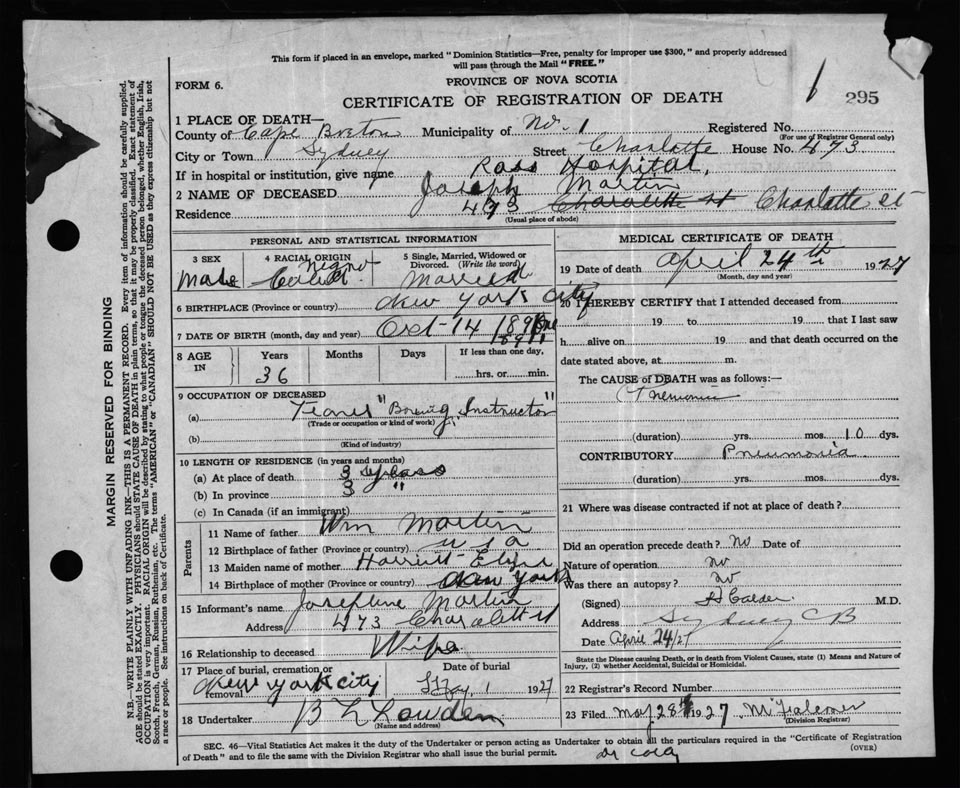 This form if placed in an envelope, marked "Dominion Statistics–Free, penalty for improper use $300," and properly addressed
will pass through the Mail "FREE."
FORM 6.
PROVINCE OF NOVA SCOTIA
CERTIFICATE OF REGISTRATION OF DEATH
295
1 PLACE OF DEATH—
County of Cape Breton Municipality of No. 1 Registered No.
(For use of Registrar General only)
City or Town Sydney Street Charlotte House No. 473
If in hospital or institution, give name Ross Hospital,
2 NAME OF DECEASED Joseph Martin
Residence 473 Charalotte St Charlotte St
(Usual place of abode)
PERSONAL AND STATISTICAL INFORMATION
3 SEX 4 RACIAL ORIGIN 5 Single, Married, Widowed or Divorced. (Write the word)
Male Negro Married
6 BIRTHPLACE (Province or country) New York City
7 DATE OF BIRTH (month, day and year) Oct-14 1891
8 AGE IN Years Months Days If less than one day,
36 hrs. or min.
9 OCCUPATION OF DECEASED
(a) "Boxing Instructor"
(Trade or occupation or kind of work)
(b)
(Kind of industry)
10 LENGTH OF RESIDENCE (in years and months)
(a) At place of death 3 years
(b) In province 3 "
(c) In Canada (if an immigrant)
Parents
11 Name of father Wm Martin
12 Birthplace of father (Province or country) U S A
13 Maiden name of mother Harriitt
14 Birthplace of mother (Province or country) New York
15 Informant's name Josephine Martin
Address 473 Charalotte St
16 Relationship to deceased Wife
17 Place of burial, cremation or removal New York City
Date of burial May 1 1927
18 Undertaker B L Lowden
(Name and address)
MEDICAL CERTIFICATE OF DEATH
19 Date of death April 24th 1927
(Month, day and year)
20 I HEREBY CERTIFY that I attended deceased from
19 to 19 that I last saw
h alive on 19 and that death occurred on the
date stated above, at m.
The CAUSE of DEATH was as follows:—
Pnemonia
(duration) yrs. mos. 10 dys.
CONTRIBUTORY Pneumonia
(duration) yrs. mos. dys.
21 Where was disease contracted if not at place of death?
Did an operation precede death? No Date of
Nature of operation No
Was there an autopsy? No
(Signed) M.D.
Address Sydney C B
Date April 24/27
State the Disease causing Death, or in death from Violent Causes, state (1) Means and Nature of
Injury, (2) whether Accidental, Suicidal or Homicidal.
22 Registrar's Record Number
23 Filed May 28th 1927
(Division Registrar)
SEC. 46—Vital Statistics Act makes it the duty of the Undertaker or person acting as Undertaker to obtain all the particulars required in the "Certificate of Registration
of Death" and to file the same with the Division Registrar who shall issue the burial permit.
(OVER)
MARGIN RESERVED FOR BINDING
N.B.—WRITE PLAINLY WITH UNFADING INK—THIS IS A PERMANENT RECORD. Every item of information should be carefully supplied.
AGE should be stated EXACTLY. PHYSICIANS should STATE CAUSE OF DEATH in plain terms, so that it may be properly classified. Exact statement of
OCCUPATION is very important. RACIAL ORIGIN will be described by stating to what people or tongue the deceased person belonged, whether English, Irish,
Scotch, French, German, Russian, Ruthenian, etc. The terms "AMERICAN" or "CANADIAN" SHOULD NOT BE USED as they express citizenship but not
a race or people. See instructions on back of Certificate.